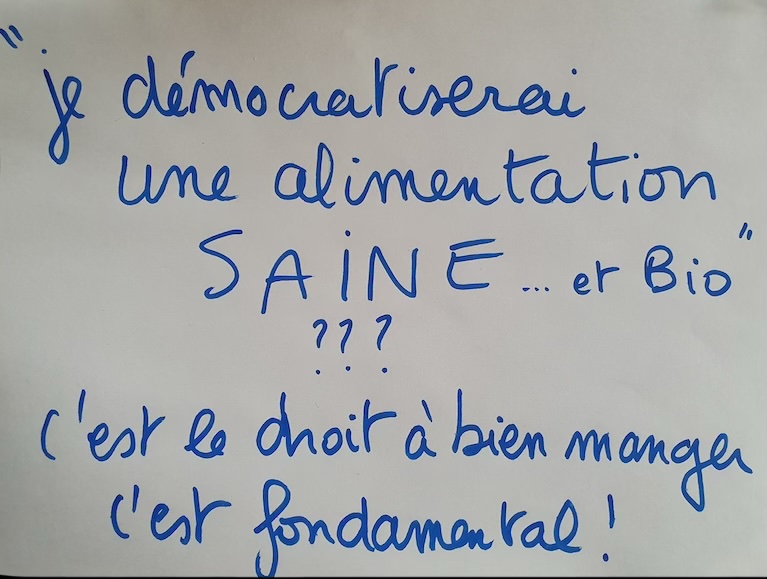 "je démocratiserai
une alimentation
SAiNE ... et Bio"
???
c'est le droit à bien manger
c'est fondamental !